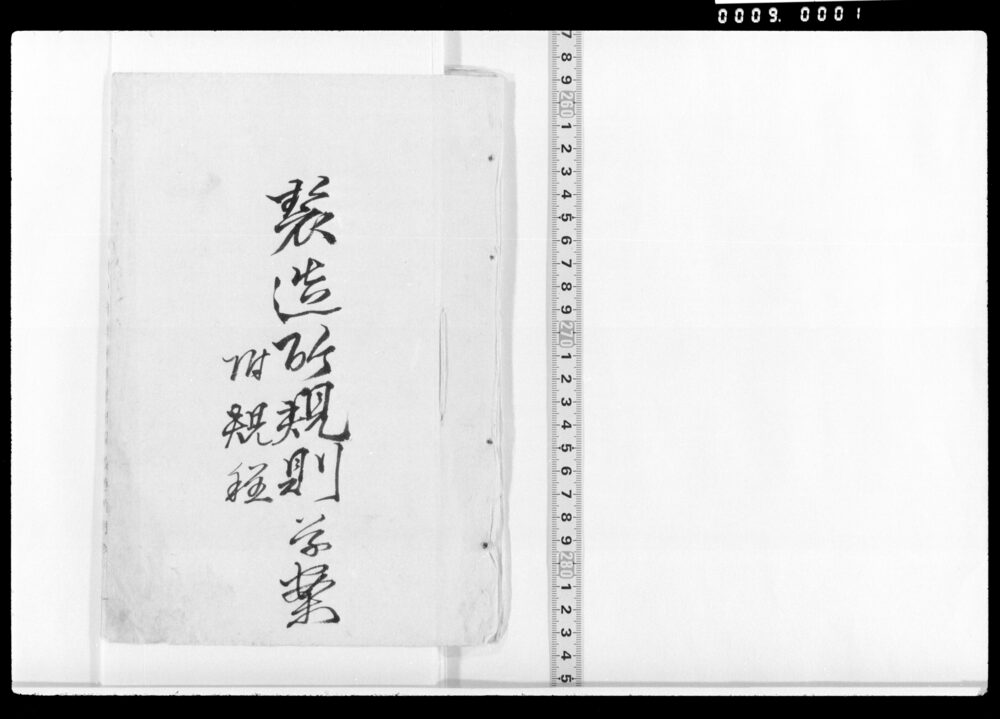 0009. 0001
製造所規則
草案
附規程
7 8 9 260 1 2 3 4 5 6 7 8 9 270 1 2 3 4 5 6 7 8 9 280 1 2 3 4 5